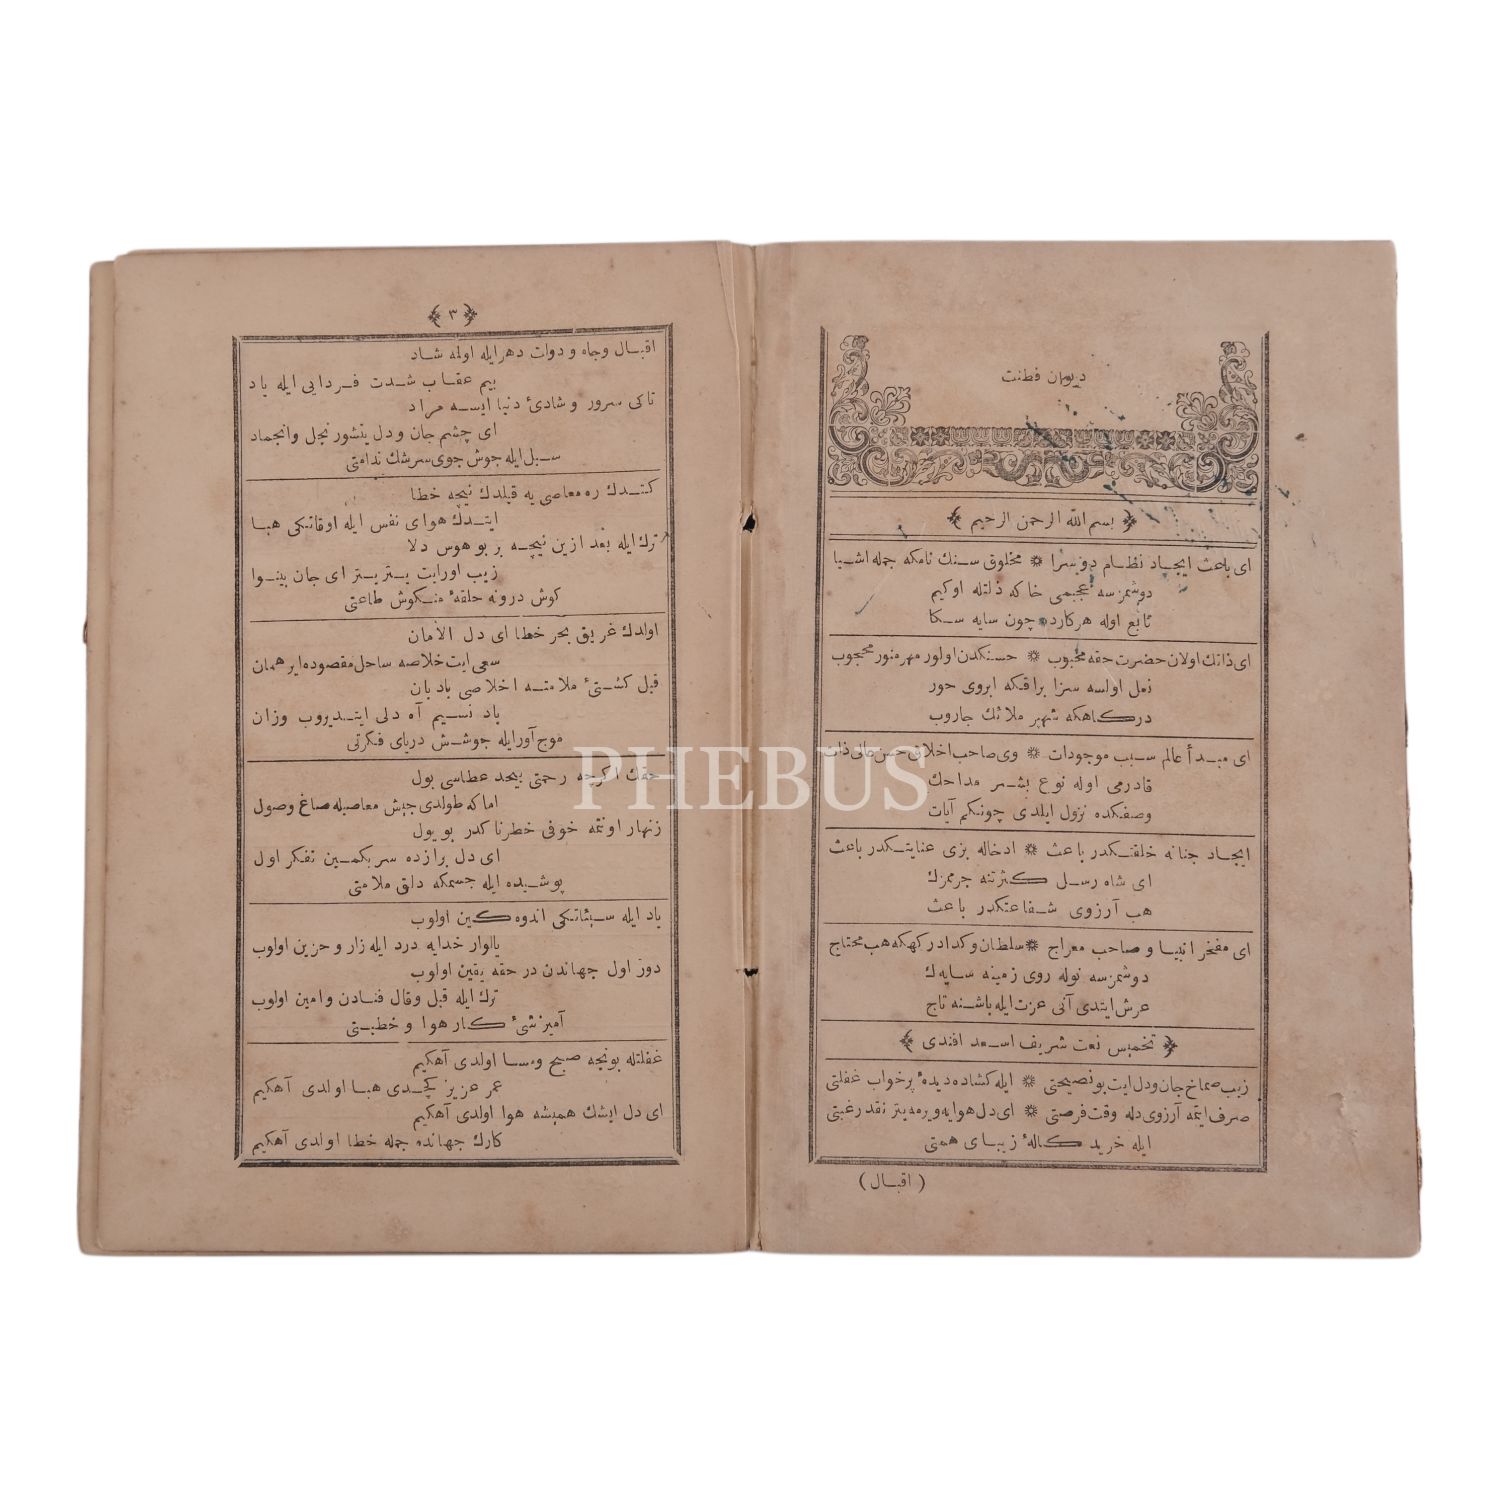 ديوان فطنت
بسم الله الرحمن الرحيم
اى باعث ايجاد نظام دوسرا * مخلوق سنك نامكه جمله اشيا
دوشمزسه نعجبمى خاكه ذلتله اوكيم
تابع اوله هركارده چون سايه سكا
اى ذاتك اولان حضرت حقه محبوب * حسنكدن اولور مهر منور محجوب
نعل اولسه سزا براقكه ابروى حور
دركاهكه شهپر ملائك جاروب
اى مبدأ عالم سبب موجودات * وى صاحب اخلاق حسن عالى ذات
قادرمى اوله نوع بشر مداحك
وصفكده نزول ايلدى چونكيم آيات
ايجاد جنانه خلقتكدر باعث * ادخاله بزى عنايتكدر باعث
اى شاه رسل كثرتنه جرممزك
هب آرزوى شفاعتكدر باعث
اى مفخر انبيا و صاحب معراج * سلطان و كدا دركهكه هب محتاج
دوشمزسه نوله روى زمينه سايه‌ك
عرش ايتدى آنى عزت ايله باشنه تاج
تخميس نعت شريف اسعد افندى
زيب صماخ جان و دل ايت بو نصيحتى * ايله كشاده ديدهٔ پرخواب غفلتى
صرف ايتمه آرزوى دله وقت فرصتى * اى دل هوايه ويرمه يتر نقد رغبتى
ايله خريد كالهٔ زيباى همتى
(اقبال)
٣
اقبال وجاه و دولت دهر ايله اولمه شاد
بيم عقاب شدت فردايى ايله ياد
تاكى سرور و شادئ دنيا ايسه مراد
اى چشم جان و دل يتشور بخل وانجماد
سبل ايله جوش جوى سرشك ندامتى
كتدك ره معاصى يه قيلدك نيچه خطا
ايتدك هواى نفس ايله اوقاتكى هبا
ترك ايله بعد ازين نيچه بر بو هوس دلا
زيب اورايت يتر يتر اى جان بينوا
كوش درونه حلقهٔ منكوش طاعتى
اولدك غريق بحر خطا اى دل الامان
سعى ايت خلاصه ساحل مقصوده اير همان
قيل كشتئ ملامته اخلاصى بادبان
باد نسيم آه دلى ايتديروب وزان
موج آور ايله جوشش درياى فكرتى
حقك اكرچه رحمتى بيحد عطاسى بول
اما كه طولدى جيش معاصيله صاغ وصول
زنهار اونتمه خوفى خطرناكدر بو يول
اى دل برازده سر بكمين تفكر اول
پوشيده ايله جسمكه دلق ملامتى
ياد ايله سيئاتكى اندوه كين اولوب
يالوار خدايه درد ايله زار و حزين اولوب
دور اول جهاندن در حقه يقين اولوب
ترك ايله قيل وقال فنادن وامين اولوب
آميزشئ كار هوا و خطيتى
غفلتله بونجه صبح ومسا اولدى آهكيم
عمر عزيز كچدى هبا اولدى آهكيم
اى دل ايشك هميشه هوا اولدى آهكيم
كارك جهانده جمله خطا اولدى آهكيم
PHEBUS